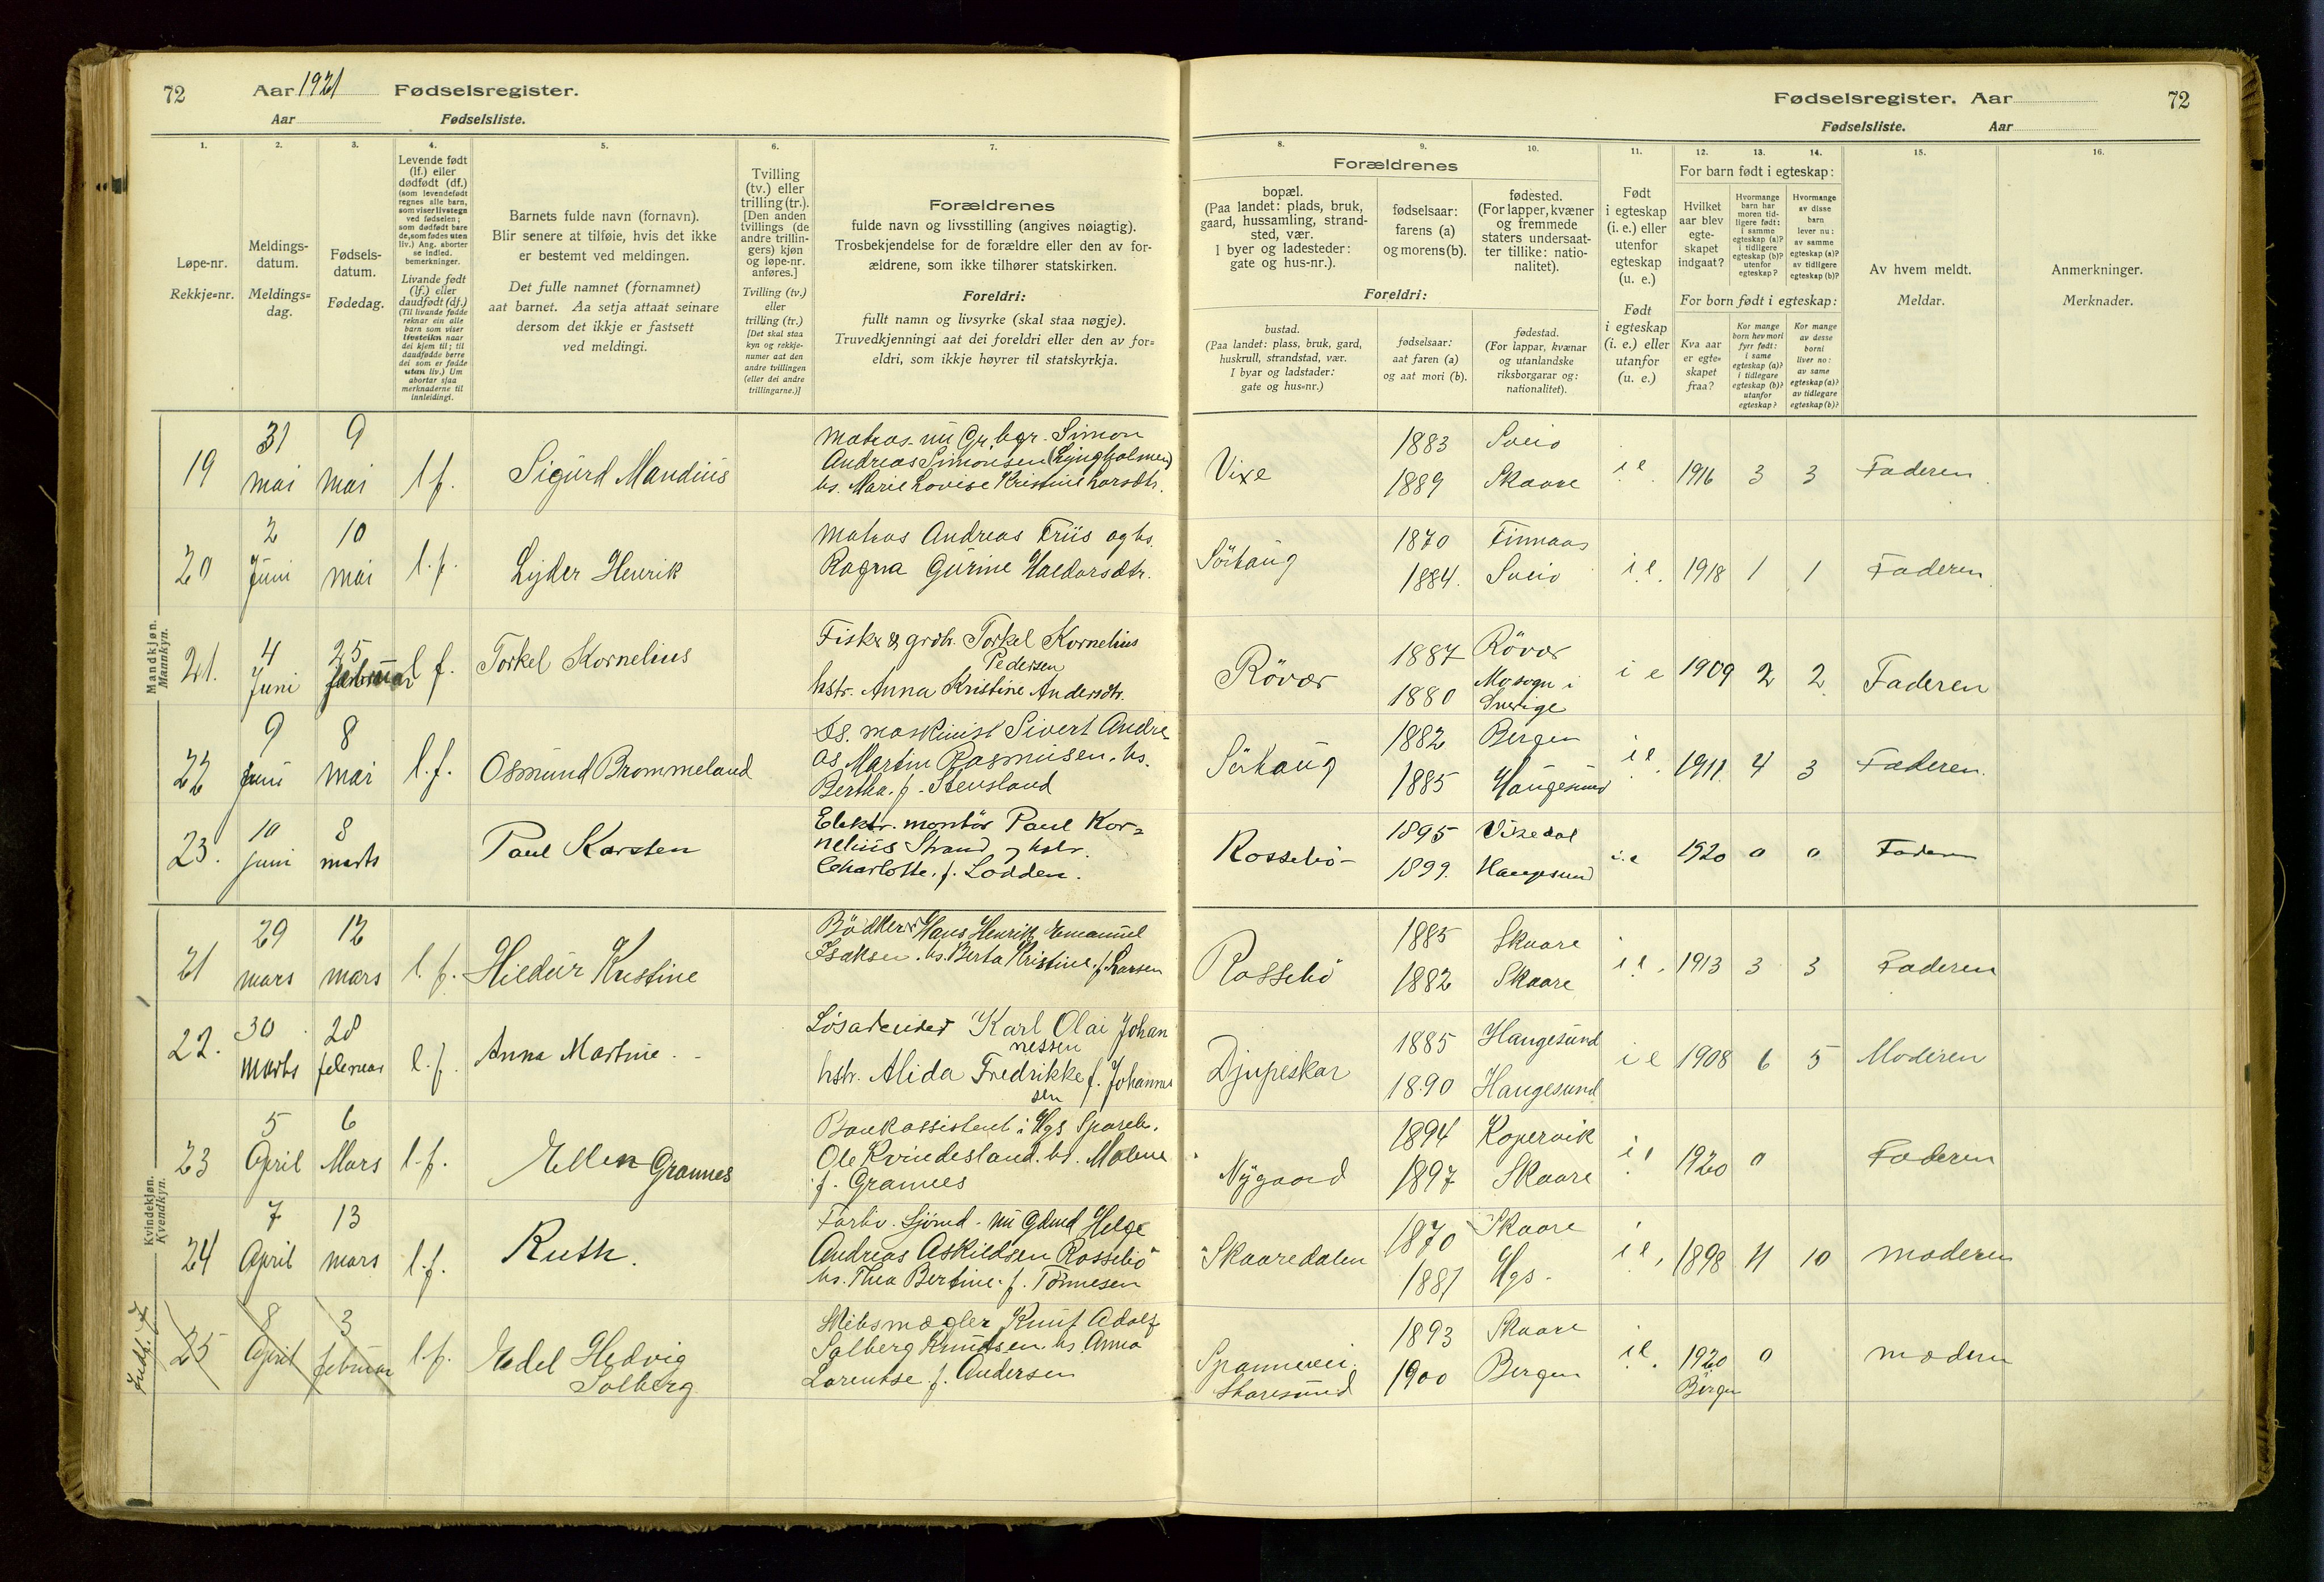 72 Aar 1921 Fødselsregister.
Aar Fødselsliste.
Fødselsregister. Aar 72
Fødselsliste. Aar
1. 2. 3. 4. 5. 6. 7. 8. 9. 10. 11. 12. 13. 14. 15. 16.
Løpe-nr.
Rekkje-nr.
Meldings-
datum.
Meldings-
dag.
Fødsels-
datum.
Fødedag.
Levende født
(lf.) eller
dødfødt (df.)
(som levendefødt
regnes alle barn,
som viser livstegn
ved fødselen;
som dødfødt bare
de, som fødes uten
liv.) Ang. aborter
se indled.
bemerkninger.
Livande født
(lf.) eller
daudfødt (df.)
(Til livande fødde
reknar ein alle
barn som viser
livsteikn naar
dei kjem til; til
daudfødde berre
dei som er fødde
utan liv.) Um
abortar sjaa
merknaderne til
innleidingi.
Barnets fulde navn (fornavn).
Blir senere at tilføie, hvis det ikke
er bestemt ved meldingen.
Det fulle namnet (fornamnet)
aat barnet. Aa setja attaat seinare
dersom det ikkje er fastsett
ved meldingi.
Tvilling
(tv.) eller
trilling (tr.).
[Den anden
tvillings (de
andre trillin-
gers) kjøn
og løpe-nr.
anføres.]
Tvilling (tv.)
eller
trilling (tr.)
[Det skal staa
kyn og rekkje-
numer aat den
andre tvillingen
(eller dei andre
trillingarne.)]
Forældrenes
fulde navn og livsstilling (angives nøiagtig).
Trosbekjendelse for de forældre eller den av for-
ældrene, som ikke tilhører statskirken.
Foreldri:
fullt namn og livsyrke (skal staa nøgje).
Truvedkjenningi aat dei foreldri eller den av for-
eldri, som ikkje høyrer til statskyrkja.
Forældrenes
bopæl.
(Paa landet: plads, bruk,
gaard, hussamling, strand-
sted, vær.
I byer og ladesteder:
gate og hus-nr.).
fødselsaar:
farens (a)
og morens (b).
fødested.
(For lapper, kvæner
og fremmede
staters undersaat-
ter tillike: natio-
nalitet).
Foreldri:
bustad.
(Paa landet: plass, bruk, gard,
huskrull, strandstad, vær.
I byar og ladstader:
gate og hus-nr.)
fødselsaar:
aat faren (a)
og aat mori (b).
fødestad.
(For lappar, kvænar
og utanlandske
riksborgarar og:
nationalitet).
Født
i egteskap
(i. e.) eller
utenfor
egteskap
(u. e.)
Født
i egteskap
(i. e.) eller
utanfor
(u. e.)
For barn født i egteskap:
Hvilket
aar blev
egte-
skapet
indgaat?
Hvormange
barn har
moren tid-
ligere født:
i samme
egteskap (a)?
i tidligere
egteskap (b)?
utenfor
egteskap?
Hvormange
av disse
barn
lever nu:
av samme
egteskap (a)?
av tidligere
egteskap (b)?
For born født i egteskap:
Kva aar
er egte-
skapet
fraa?
Kor mange
born hev mori
fyrr født:
i same
egteskap (a)?
i tidlegare
egteskap (b)?
utanfor
egteskap?
Kor mange
av desse
borni
liver no:
av same
egteskap (a)?
av tidlegare
egteskap (b)?
Av hvem meldt.
Meldar.
Anmerkninger.
Merknader.
Mandkjøn.
Mannkyn.
19 31 mai 9 mai l f. Sigurd Mandius
Matros. nu Gr. bgr. Simon
Andreas Simonsen (Lyngholmen)
hs. Marie Lovise Kristine Larsdtr.
Vixe 1883 Sveio 1889 Skaare i e. 1916 3 3 Faderen.
20 2 Juni 10 mai l. f. Lyder Henrik
Matros Andreas Friis og hs.
Ragna Gurine Haldorsdtr.
Sörhaug 1870 Finnaas 1884. Sveio i e. 1918 1 1 Faderen.
21. 4 Juni 25 februar l f. Torkel Kornelius
Fisker & grdbr. Torkel Kornelius
Pedersen
hstr. Anna Kristine Andersdtr.
Rövær 1887 Rövær 1880 Mosogn i
Sverige i e 1909 2 2 Faderen
22 9 juni 8 mai l. f. Osmund Brommeland
Ds. maskinist Sivert Andre-
as Martin Rasmusen. hs.
Bertha. f. Stensland
Sörhaug 1882 Bergen 1885 Haugesund i e. 1911. 4 3 Faderen.
23. 10 juni 8 marts Paul Karsten
Elektr. montör Paul Kor-
nelius Strand og hstr.
Charlotte. f. Lodden.
Rossebö- 1895 Vikedal 1899. Haugesund i. e 1920 0 0 Faderen
Kvindekjøn.
Kvendkyn.
21 29 mars 12 mars l. f. Hildur Kristine
Bödker Hans Henrik Emanuel
Isaksen. hs. Berta Kristine, f. Larsen
Rossebö 1885 Skaare 1882 Skaare i e. 1913 3 3 Faderen
22. 30 marts 28 februar l. f. Anna Martine.
Løsarbeider Karl Olai Johan
nessen
hstr. Alida Fredrikke f. Johanne
sen
Djupeskar 1885 Haugesund 1890 Haugesund i e 1908 6 5 Moderen
23 5 April 6 Mars l. f. Ellen Grannes
Bankassistent i Hgs Spareb.
Ole Kvindesland. hs. Malene
f. Grannes
Nygaard 1894 Kopervik 1897 Skaare i e 1920 0 Faderen
24 7 April 13 mars l. f. Ruth.
Forhv. Sjømd. nu Gdmd Helge
Andreas Askildsen Rossebö
hs. Thea Bertine. f. Tönnesen
Skaaredalen 1870 Skaare 1881 Hgs. i e. 1898 11 10 moderen
25 8 April 3 februar l. f. Edel Hedvig
Solberg
Skibsmægler Knut Adolf
Solberg Knudsen. hs Anna
Larentse f. Andersen
Spannevei.
Skaresund 1893 Skaare 1900 Bergen i e. 1920
Bergen 0 modern